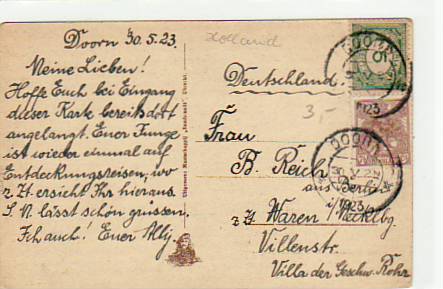 Doorn 30.5.23.
Holland
Meine Lieben!
Hoffe Euch bei Eingang
dieser Karte bereits dort
angelangt. Euer Junge
ist wieder einmal auf
Entdeckungsreisen, wo
z. Zt ersieht Ihr hieraus.
S. M lässt schön grüssen.
Ich auch! Euer
Deutschland.
3,-
Frau
B. Reich
aus Berlin
z. Zt. Waren i/Mecklbg.
Villenstr.
Villa der Geschw. Rohr
5
DOORN
1923
DOORN
1923